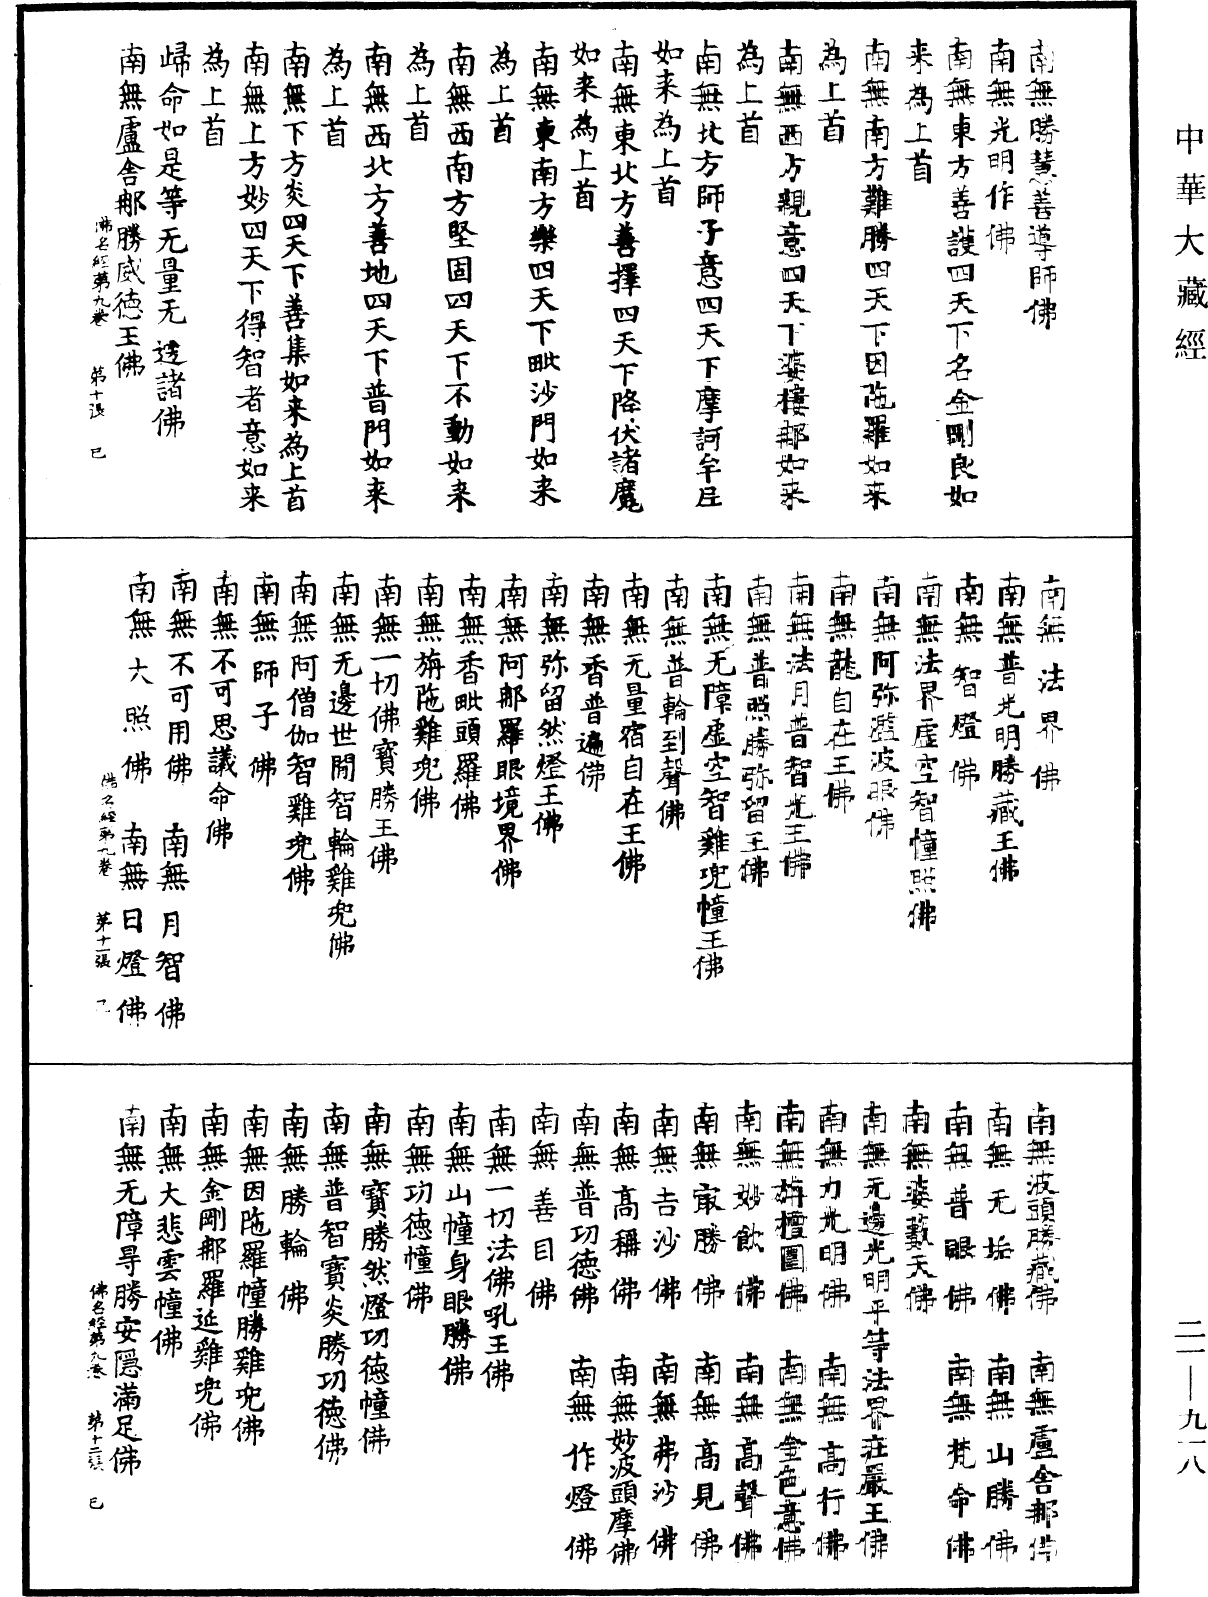 中華大藏經
南無勝慧善導師佛
南無光明作佛
南無東方善護四天下名金剛良如
来為上首
南無南方難勝四天下因陁羅如来
為上首
南無西方親意四天下婆樓那如来
為上首
南無北方師子意四天下摩訶牟𡰱
如来為上首
南無東北方善擇四天下降伏諸魔
如来為上首
南無東南方樂四天下毗沙門如来
為上首
南無西南方堅固四天下不動如来
為上首
南無西北方善地四天下普門如来
為上首
南無下方炎四天下善集如来為上首
南無上方妙四天下得智者意如来
為上首
歸命如是等无量无邊諸佛
南無盧舍那勝威德王佛
佛名經第九卷 第十張 已
南無法界佛
南無普光明勝藏王佛
南無智燈佛
南無法界虛空智幢照佛
南無阿弥濫波眼佛
南無龍自在王佛
南無法月普智光王佛
南無普照勝弥留王佛
南無无障虛空智雞兜幢王佛
南無普輪到聲佛
南無无量宿自在王佛
南無香普遍佛
南無弥留然燈王佛
南無阿那羅眼境界佛
南無香毗頭羅佛
南無旃陁雞兜佛
南無一切佛寶勝王佛
南無无邊世閒智輪雞兜佛
南無阿僧伽智雞兜佛
南無師子佛
南無不可思議命佛
南無不可用佛 南無月智佛
南無大照佛 南無日燈佛
佛名經第九卷 第十一張 已
南無波頭勝藏佛 南無盧舍那佛
南無无垢佛 南無山勝佛
南無普眼佛 南無梵命佛
南無婆藪天佛
南無无邊光明平等法界莊嚴王佛
南無力光明佛 南無高行佛
南無旃檀圍佛 南無金色意佛
南無妙飲佛 南無高聲佛
南無㝡勝佛 南無高見佛
南無吉沙佛 南無弗沙佛
南無高稱佛 南無妙波頭摩佛
南無普功德佛 南無作燈佛
南無善目佛
南無一切法佛吼王佛
南無山幢身眼勝佛
南無功德幢佛
南無寶勝然燈功德幢佛
南無普智寶炎勝功德佛
南無勝輪佛
南無因陁羅幢勝雞兜佛
南無金剛那羅延雞兜佛
南無大悲雲幢佛
南無无障㝵勝安隱滿足佛
佛名經第九卷 第十二張 已
二一—九一八